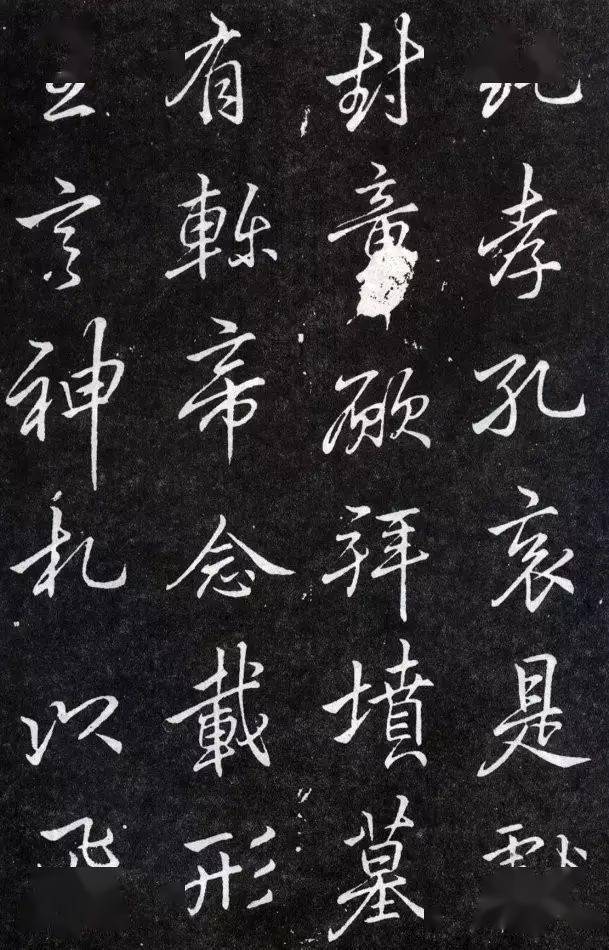 孝孔哀是
封章願拜墳墓
有軫帝念載形
言神札以